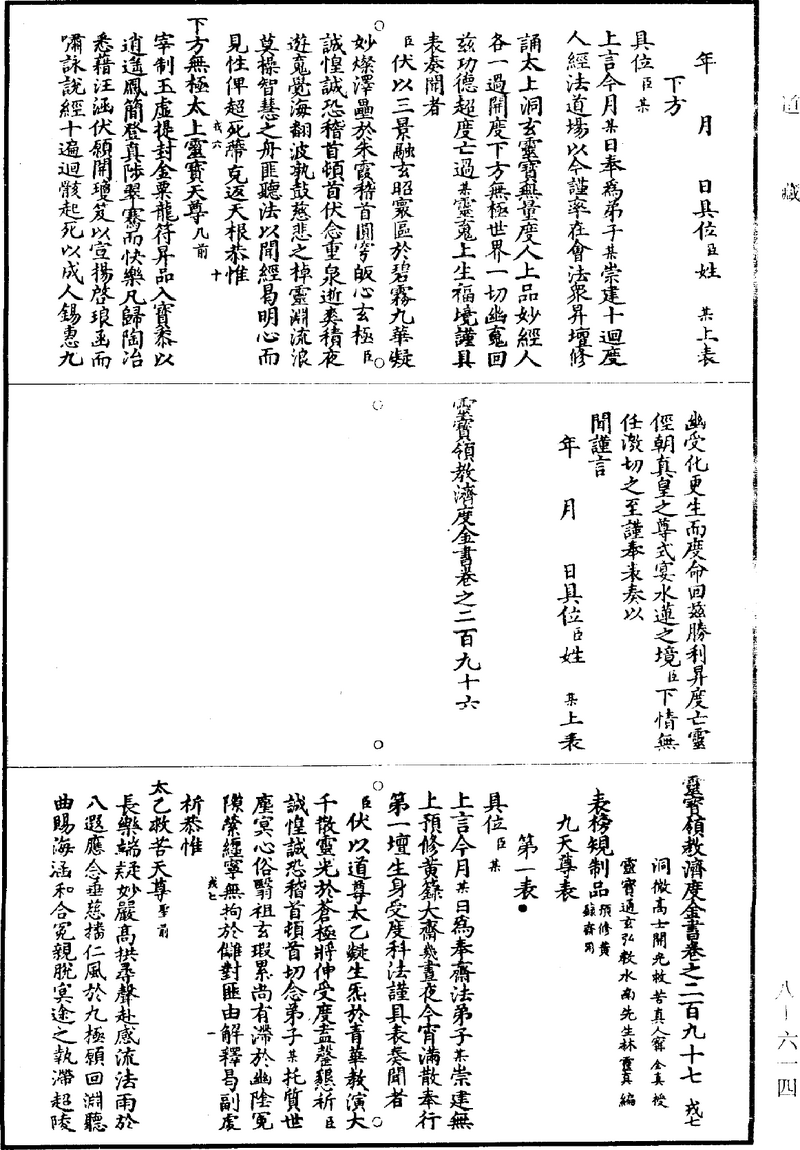 道藏
年　月　　日具位臣姓　某上表
下方
具位臣某
上言今月某日奉為弟子某崇建十迴度
人經法道場以今謹率在會法衆昇壇修
誦太上洞玄靈寶無量度人上品妙經人
各一過開度下方無極世界一切幽䰟回
茲功德超度亡過某靈䰟上生福境謹具
表奏聞者
臣伏以三景融玄昭寰區於碧霧九華凝
妙燦澤壘於朱霞稽首圓穹皈心玄極臣
誠惶誠恐稽首頓首伏念重泉逝爽積夜
遊䰟覺海翻波孰鼓慈悲之棹靈淵流浪
莫操智慧之舟匪聽法以聞經曷明心而
見性俾超死籍克返天根恭惟
戎六　十
下方無極太上靈寶天尊几前
宰制玉虚提封金粟龍符昇品入寶黍以
逍遥鳳簡登真陟翠騫而快樂凡歸陶冶
悉藉汪涵伏願開瓊笈以宣揚啓琅函而
嘯詠說經十遍迴骸起死以成人錫惠九
幽受化更生而度命回茲勝利昇度亡靈
徑朝真皇之尊式宴水蓮之境臣下情無
任激切之至謹奉表奏以
聞謹言
年　月　　日具位臣姓　某上表
靈寶領教濟度金書卷之二百九十六
靈寶領教濟度金書卷之二百九十七　戎七
洞微高士開光救苦真人甯全真授
靈寶通玄弘教水南先生林靈真編
表榜規制品預修黃籙齋用
九天尊表
第一表
具位臣某
上言今月某日為奉齋法弟子某崇建無
上預修黃籙大齋幾晝夜今宵滿散奉行
第一壇生身受度科法謹具表奏聞者
臣伏以道尊太乙凝生炁於青華教演大
千散靈光於蒼極將伸受度盍罄懇祈臣
誠惶誠恐稽首頓首切念弟子某托質世
塵冥心俗翳祖玄瑕累尚有滯於幽陰冤
隙縈纏寧無拘於讎對匪由解釋曷副虔
祈恭惟
戎七　一
太乙救苦天尊聖前
長樂端凝妙嚴高拱尋聲赴感流法雨於
八遐應念垂慈播仁風於九極願回淵聽
曲賜海涵和合冤親脫冥途之執滯超陵
八—六一四